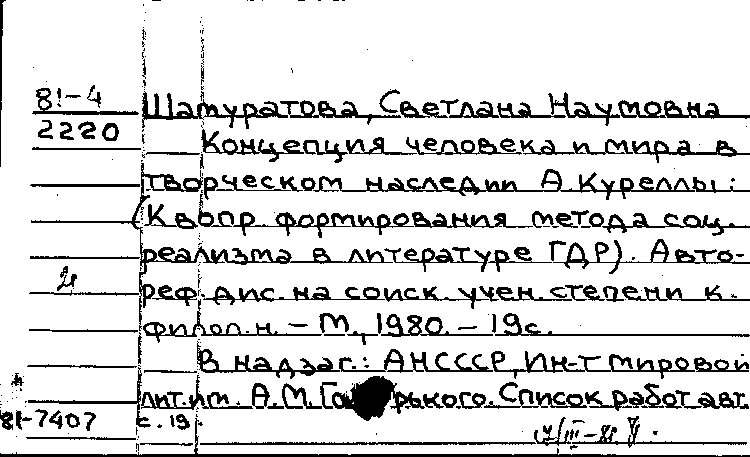 81-4
2220
Шатуратова, Светлана Наумовна
Концепция человека и мира в
творческом наследии А. Куреллы:
(К вопр. формирования метода соц.
реализма в литературе ГДР). Авто-
реф. дис. на соиск. учен. степени к.
филол. н. - М., 1980. - 19 с.
В надзаг.: АН СССР, Ин-т мировой
лит. им. А.М. Го рького. Список работ авт.
81-7407 с. 19.